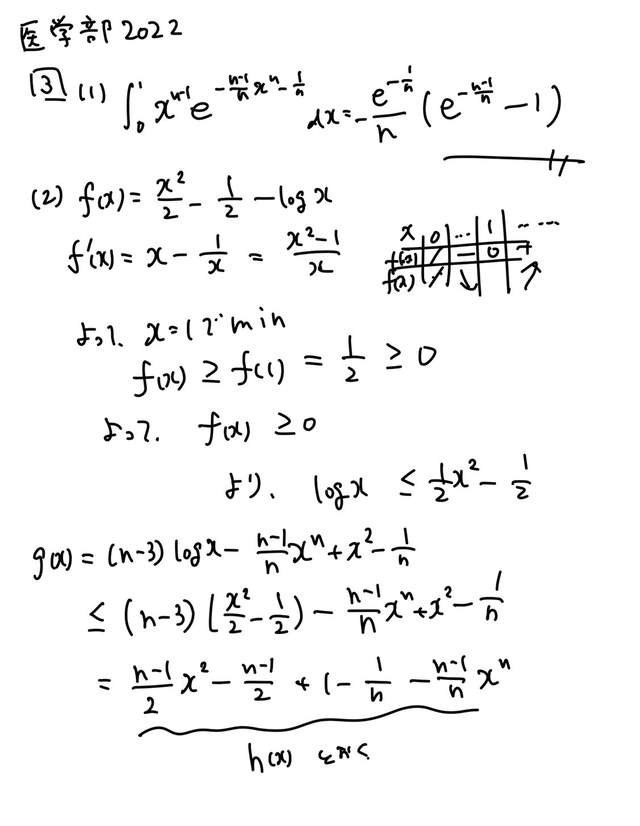 医学部 2022
3 (1) ∫₀¹ x^{n-1} e^{-\frac{n-1}{n}x^n - \frac{1}{n}} dx = -\frac{e^{-\frac{1}{n}}}{n} (e^{-\frac{n-1}{n}} - 1)
(2) f(x) = \frac{x^2}{2} - \frac{1}{2} - log x
f'(x) = x - \frac{1}{x} = \frac{x^2-1}{x}
x 0 … 1 … …
f'(x) / − 0 +
f(x) / ↓ ↗
よって、x=1でmin
f(x) ≥ f(1) = \frac{1}{2} ≥ 0
よって、f(x) ≥ 0
より、log x ≤ \frac{1}{2}x^2 - \frac{1}{2}
g(x) = (n-3) log x - \frac{n-1}{n}x^n + x^2 - \frac{1}{n}
≤ (n-3) (\frac{x^2}{2} - \frac{1}{2}) - \frac{n-1}{n}x^n + x^2 - \frac{1}{n}
= \frac{n-1}{2}x^2 - \frac{n-1}{2} + 1 - \frac{1}{n} - \frac{n-1}{n}x^n
h(x) とおく